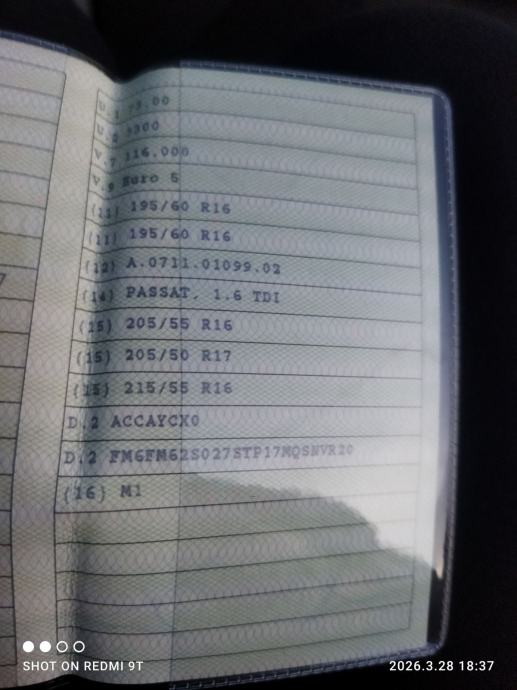 U.1 73.00
U.2 3300
V.7 116.000
V.9 Euro 5
(11) 195/60 R16
(11) 195/60 R16
(12) A.0711.01099.02
(14) PASSAT, 1.6 TDI
(15) 205/55 R16
(15) 205/50 R17
(15) 215/55 R16
D.2 ACCAYCX0
D.2 FM6FM62S027STP17MQSNVR20
(16) M1
SHOT ON REDMI 9T
2026.3.28 18:37